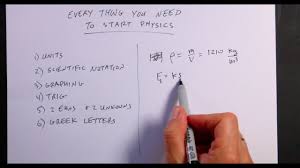 EVERY THING YOU NEED
TO START PHYSICS
1) UNITS
2) SCIENTIFIC NOTATION
3) GRAPHING
4) TRIG
5) 2 EQNS & 2 UNKNOWNS
6) GREEK LETTERS
ρ = m/V = 1210 kg/m³
Fs = kx